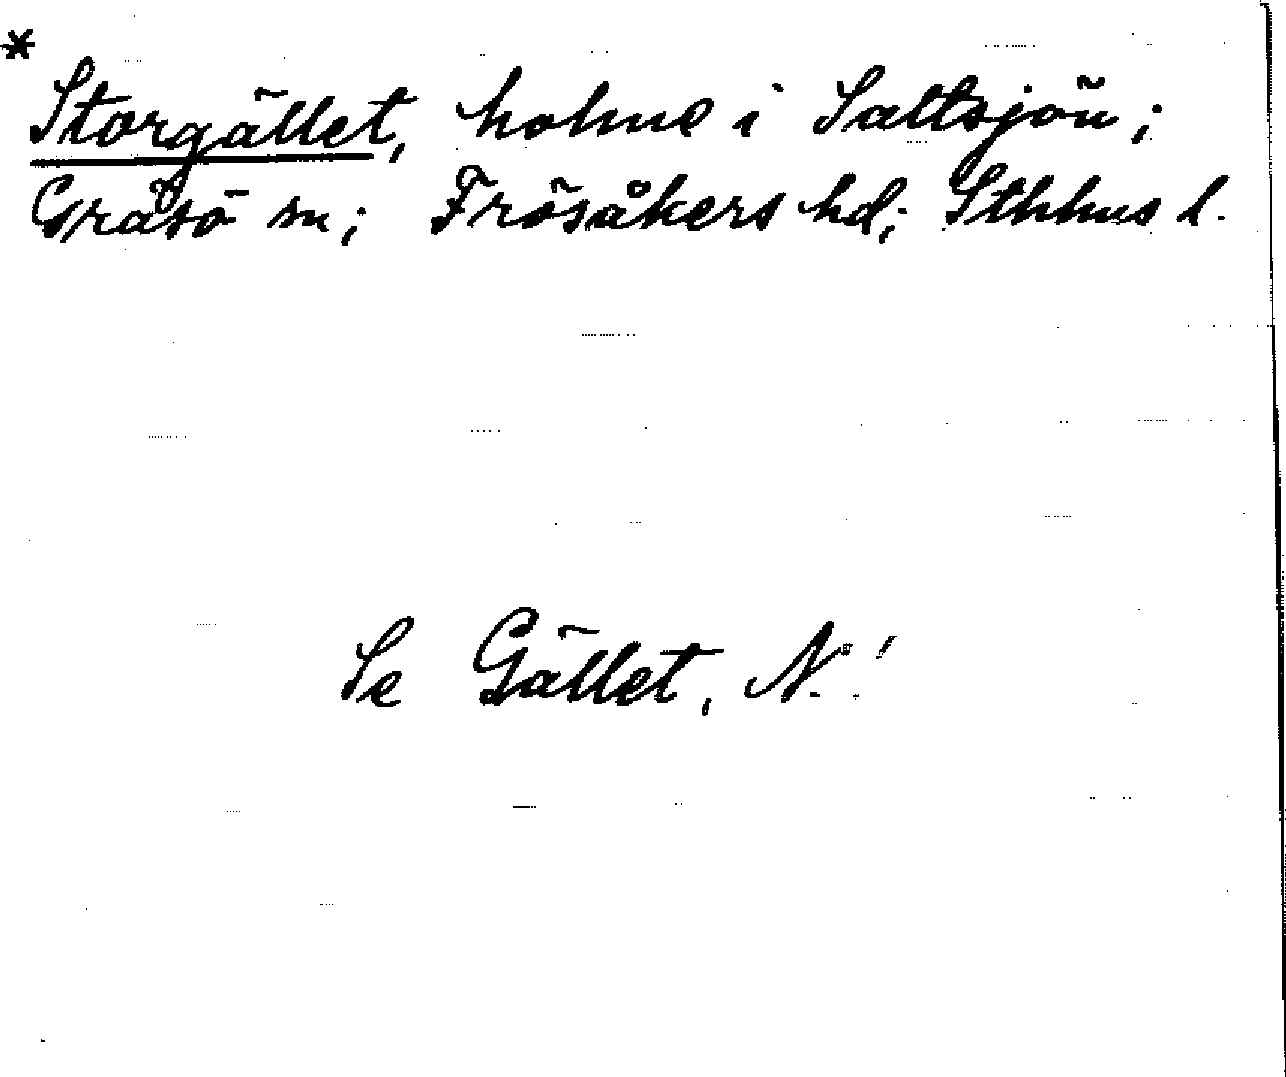 * Storgället, holme i Saltsjön;
Gräsö sn; Frösåkers hd; Sthlms l.
Se Gället, N.!